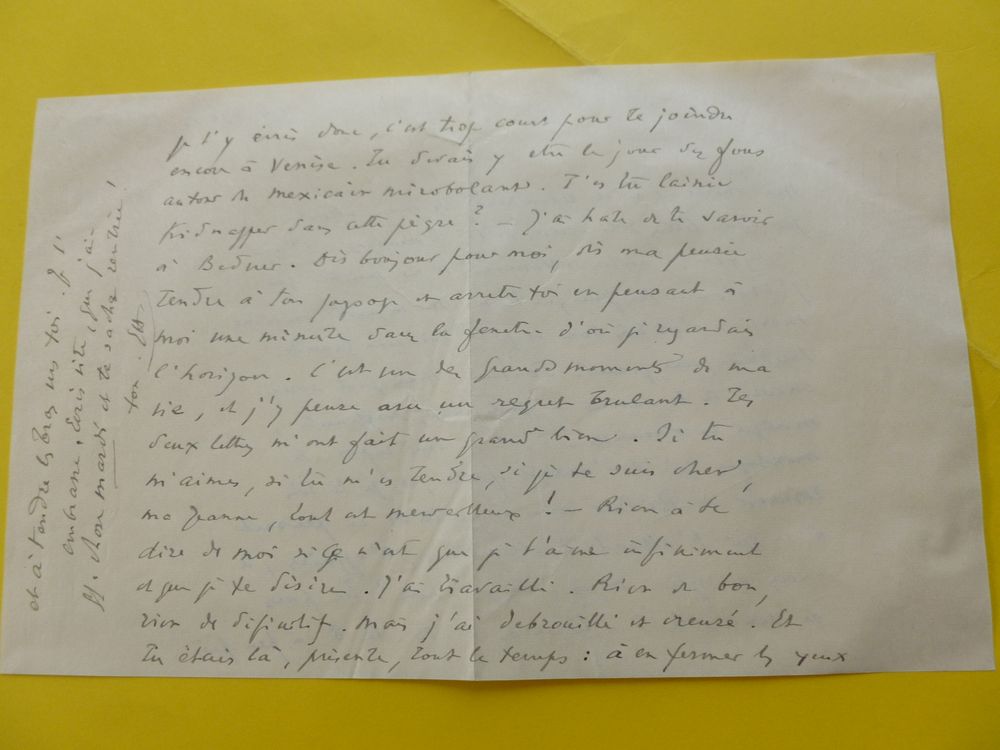 Je t'y écris donc, c'est trop court pour te joindre
encore à Venise. Tu devais y être le jour des fous
autour de mexicain mirobolant. T'es tu laissée
Kidnapper dans cette pègre ? — J'ai hate de te savoir
à Dis bonjour pour moi, dis ma pensée
tendre à ton paysage et arrete toi en pensant à
moi une minute dans la fenetre d'où je regardais
l'horizon. C'est un des grands moments de ma
vie, et j'y pense avec un regret brulant. Tes
deux lettres m'ont fait un grand bien. Si tu
m'aimes, si tu m'es tendre, si je te suis cher,
ma Jeanne, tout est merveilleux ! — Rien à te
dire de moi si ce n'est que je t'aime infiniment
et que je te désire. J'ai travaillé. Rien de bon,
rien de définitif. Mais j'ai débrouillé et creusé. Et
tu étais là, présente, tout le temps : à en fermer les yeux
et à tendre les bras vers toi. Je t'
embrasse. Ecris vite, que j'ai-
mardi et te sache rentrée !
ton.